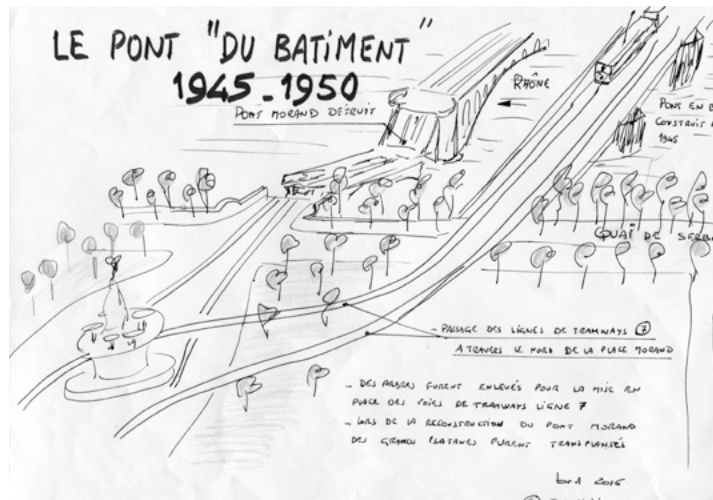 LE PONT "DU BATIMENT"
1945-1950
PONT MORAND DÉTRUIT
RHÔNE
PONT EN B
CONSTRUIT
1945
QUAI DE SERB
- PASSAGE DES LIGNES DE TRAMWAYS 7
A TRAVERS LE NORD DE LA PLACE MORAND
- DES ARBRES FURENT ENLEVÉS POUR LA MISE EN
PLACE DES VOIES DE TRAMWAYS LIGNE 7
- LORS DE LA RECONSTRUCTION DU PONT MORAND
DES GRANDS PLATANES FURENT TRANSPLANTÉS
2016